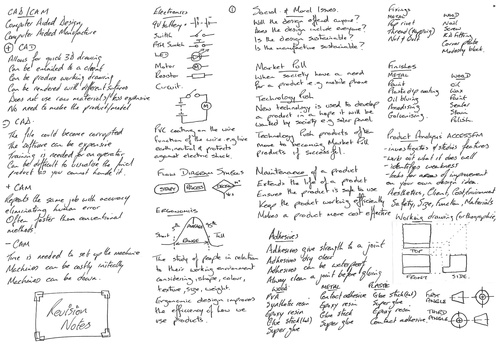 CAD/CAM
Computer Aided Design
Computer Aided Manufacture
+ CAD
Allows for quick 3D drawing
Can be emailed to a client
Can be produce working drawing
Can be rendered with different surfaces
Does not use raw materials/less expensive
No need to make the product
- CAD
The file could become corrupted
The software can be expensive
Training is needed for an operator
Can be difficult to visualise the final
product as you cannot handle it.
+ CAM
Repeats the same job with accuracy
eliminating human error
Often faster than conventional
methods
- CAM
Time is needed to set up the machine
Machines can be costly initially
Machines can be down.
Revision
Notes
Electronics
9V Battery
Switch
Push Switch
LED
Motor
Resistor
Circuit
M
PVC contains the wire
Function of the wire e.g. live
earth, neutral & protects
against electric shock.
Flow Diagram Symbols
START
PROCESS
DECISION
Ergonomics
AVERAGE
Short
Tall
The study of people in relation
to their working environment
considering, shape, colour,
texture, size, weight.
Ergonomic design improves
the efficiency of how we
use products.
1
Social & Moral Issues.
Will the design offend anyone?
Does the design include everyone?
Is the design sustainable?
Is the manufacture sustainable?
Market Pull
When society have a need
For a product e.g mobile phone
Technology Push
New technology is used to develop
a product in a hope it will be
wanted by society e.g solar panel
Technology Push products often
move to becoming Market Pull
products if successful.
Maintenance of a product
Extends the life of a product
Ensures the product is safe to use
Keep the product working efficiently
Makes a product more cost effective
Adhesives
Adhesives give strength to a joint
Adhesives dry clear
Adhesives can be waterproof
Always clean a joint before glueing
WOOD METAL PLASTIC
PVA Contact adhesive Glue stick (hot)
Synthetic resin Epoxy resin Super glue
Epoxy resin Glue stick Epoxy resin
Glue stick (hot) Super glue Contact adhesive
Super glue
Fixings
METAL WOOD
Pop rivet Nail
Thread (tapping) Screw
Nut & bolt KD Fitting
Corner plate
Modesty block.
Finishes
METAL WOOD
Paint Oil
Plastic dip coating Wax
Oil bluing Paint
Anodising Sealer
Galvanising. Stain
Polish
Product Analysis ACCESSFM
- investigates & studies features
- works out what it does well
- identifies weakness
- looks for areas of improvement
on your own design idea.
Aesthetics, Client, Cost, Environment
Safety, Size, Function, Materials
Working drawing (orthographic)
TOP
FRONT
SIDE
FIRST
ANGLE
THIRD
ANGLE